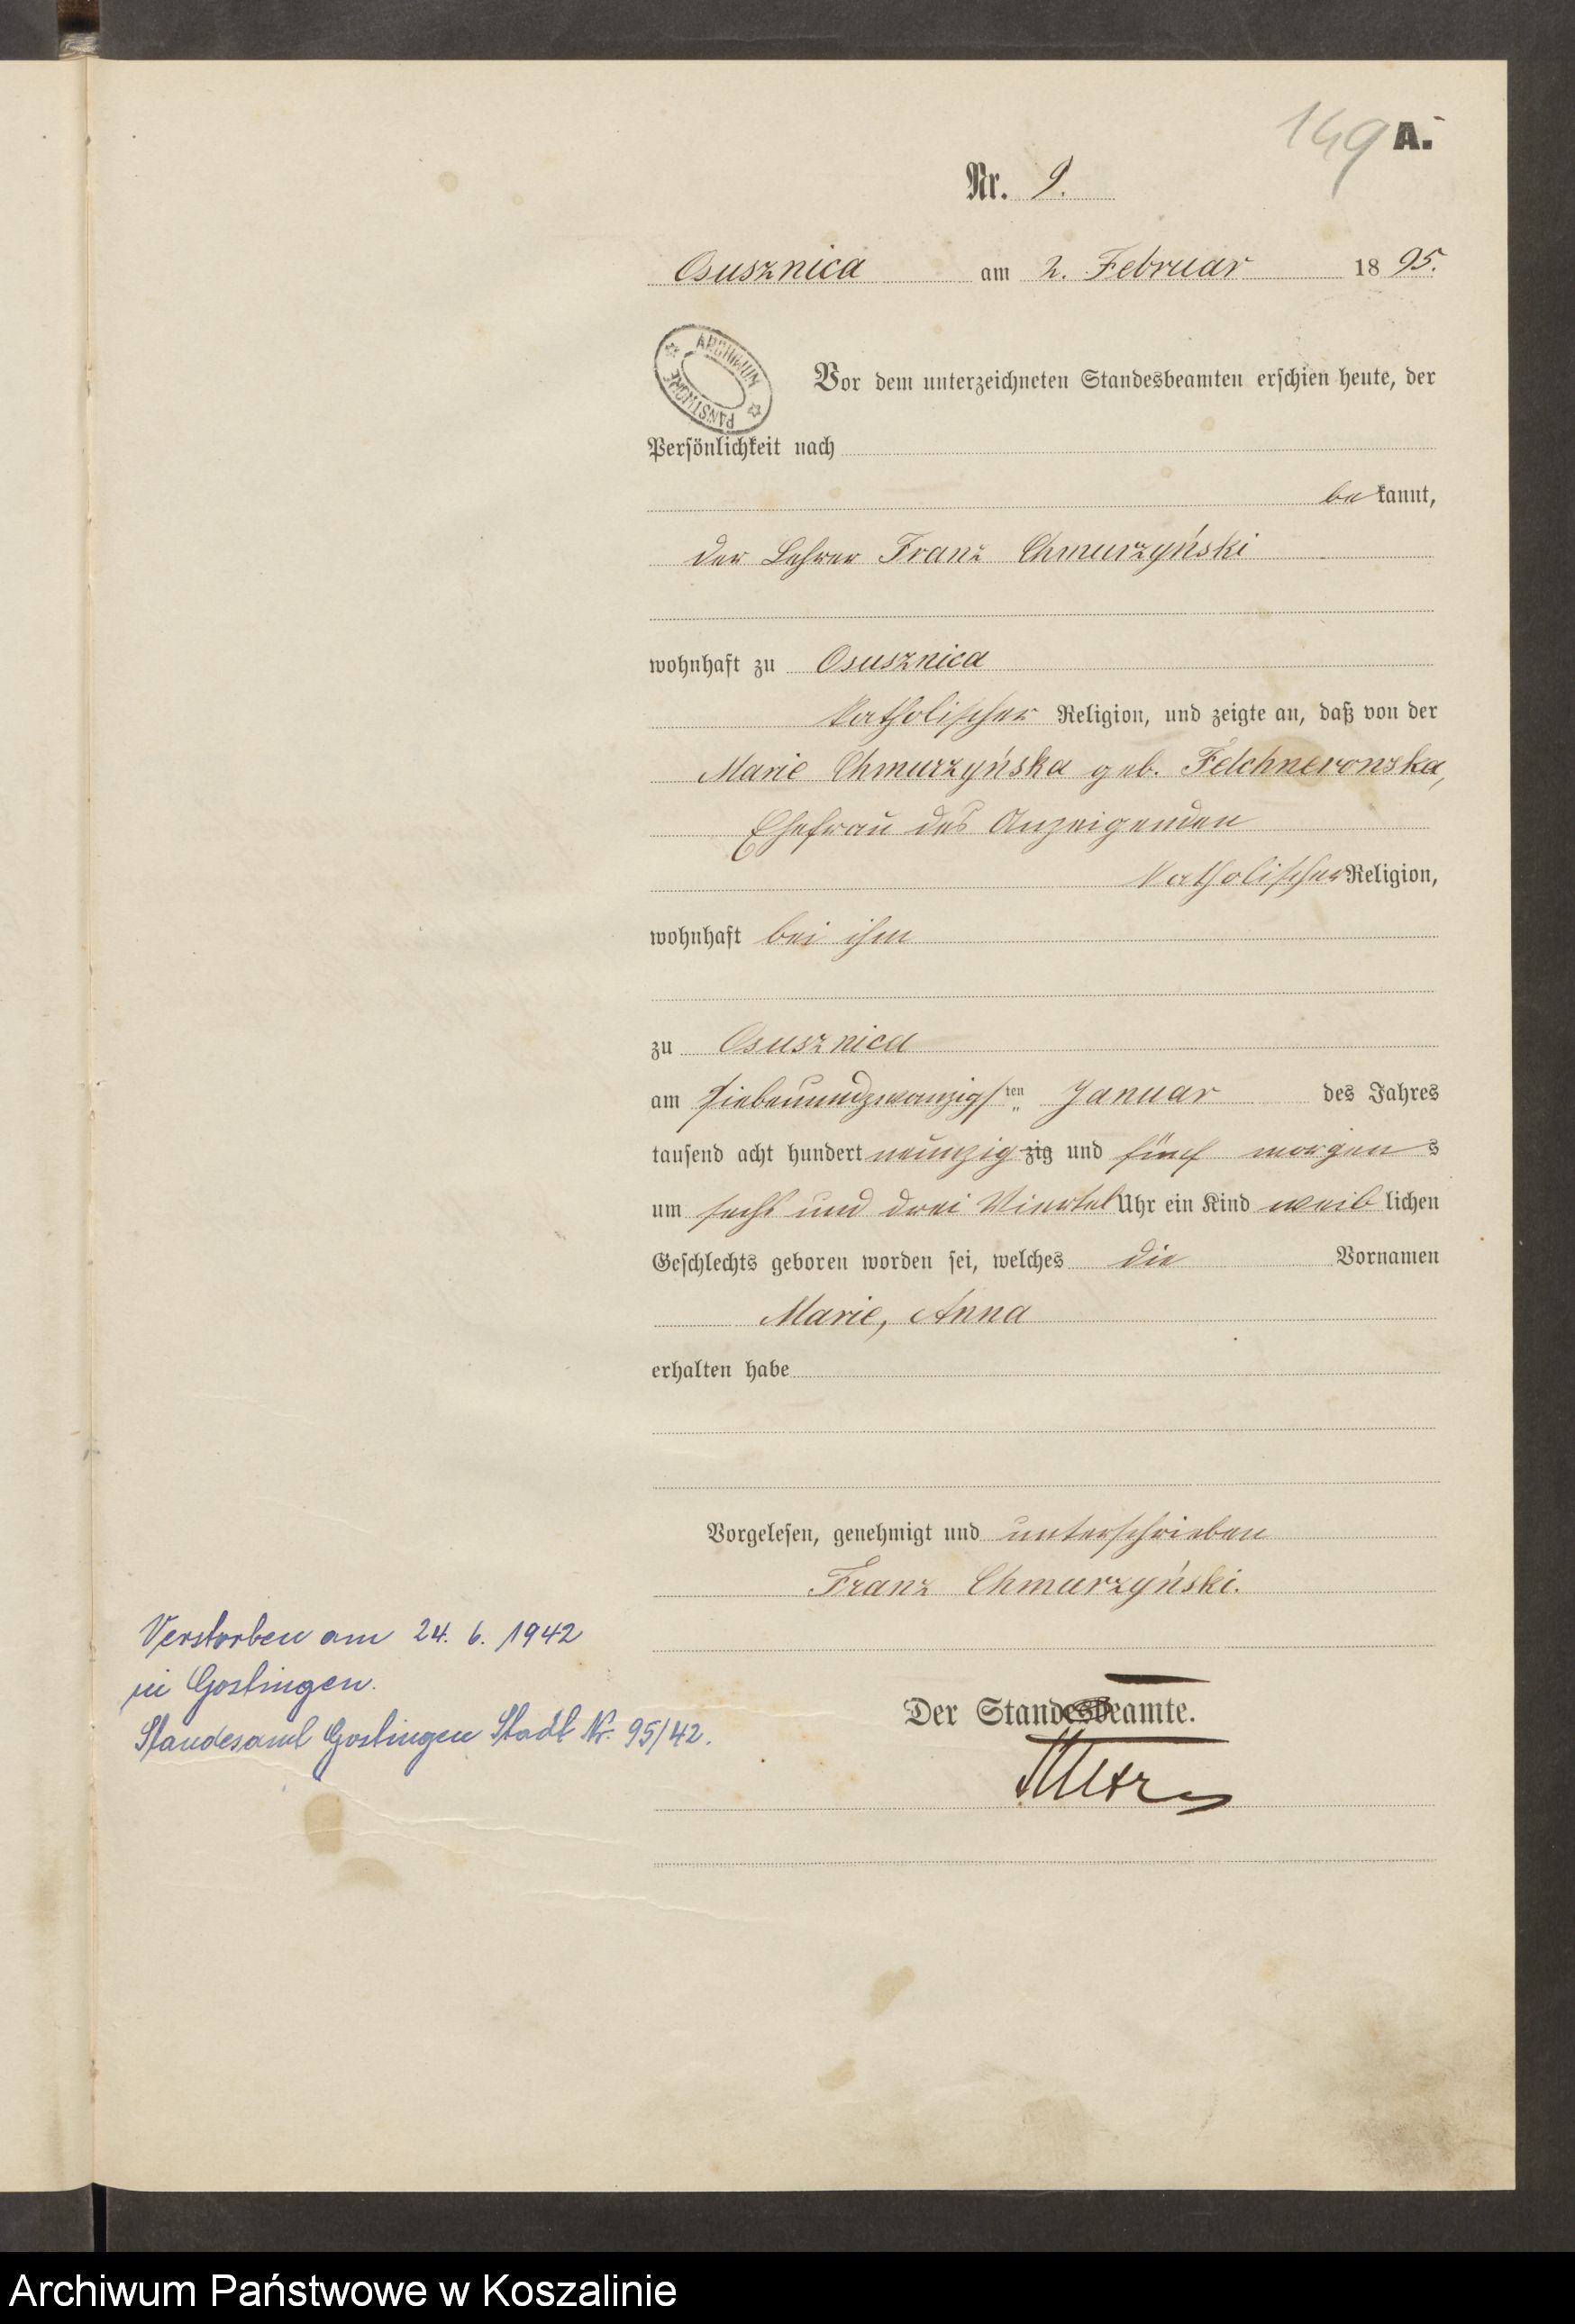 149 A.
Nr. 9.
Osusznica am 2. Februar 1895.
ARCHIWUM PAŃSTWOWE
Vor dem unterzeichneten Standesbeamten erschien heute, der
Persönlichkeit nach
bekannt,
der Lehrer Franz Chmurzyński
wohnhaft zu Osusznica
katholischer Religion, und zeigte an, daß von der
Marie Chmurzyńska geb. Felchnerowska,
Ehefrau des Anzeigenden
katholischer Religion,
wohnhaft bei ihm
zu Osusznica
am siebenundzwanzigsten Januar des Jahres
tausend acht hundert neunzig zig und fünf morgens
um sechs und drei Viertel Uhr ein Kind weiblichen
Geschlechts geboren worden sei, welches die Vornamen
Marie, Anna
erhalten habe
Vorgelesen, genehmigt und unterschrieben
Franz Chmurzyński.
Verstorben am 24. 6. 1942
in Gostingen.
Standesamt Gostingen Stadt Nr. 95/42.
Der Standesbeamte.
Archiwum Państwowe w Koszalinie